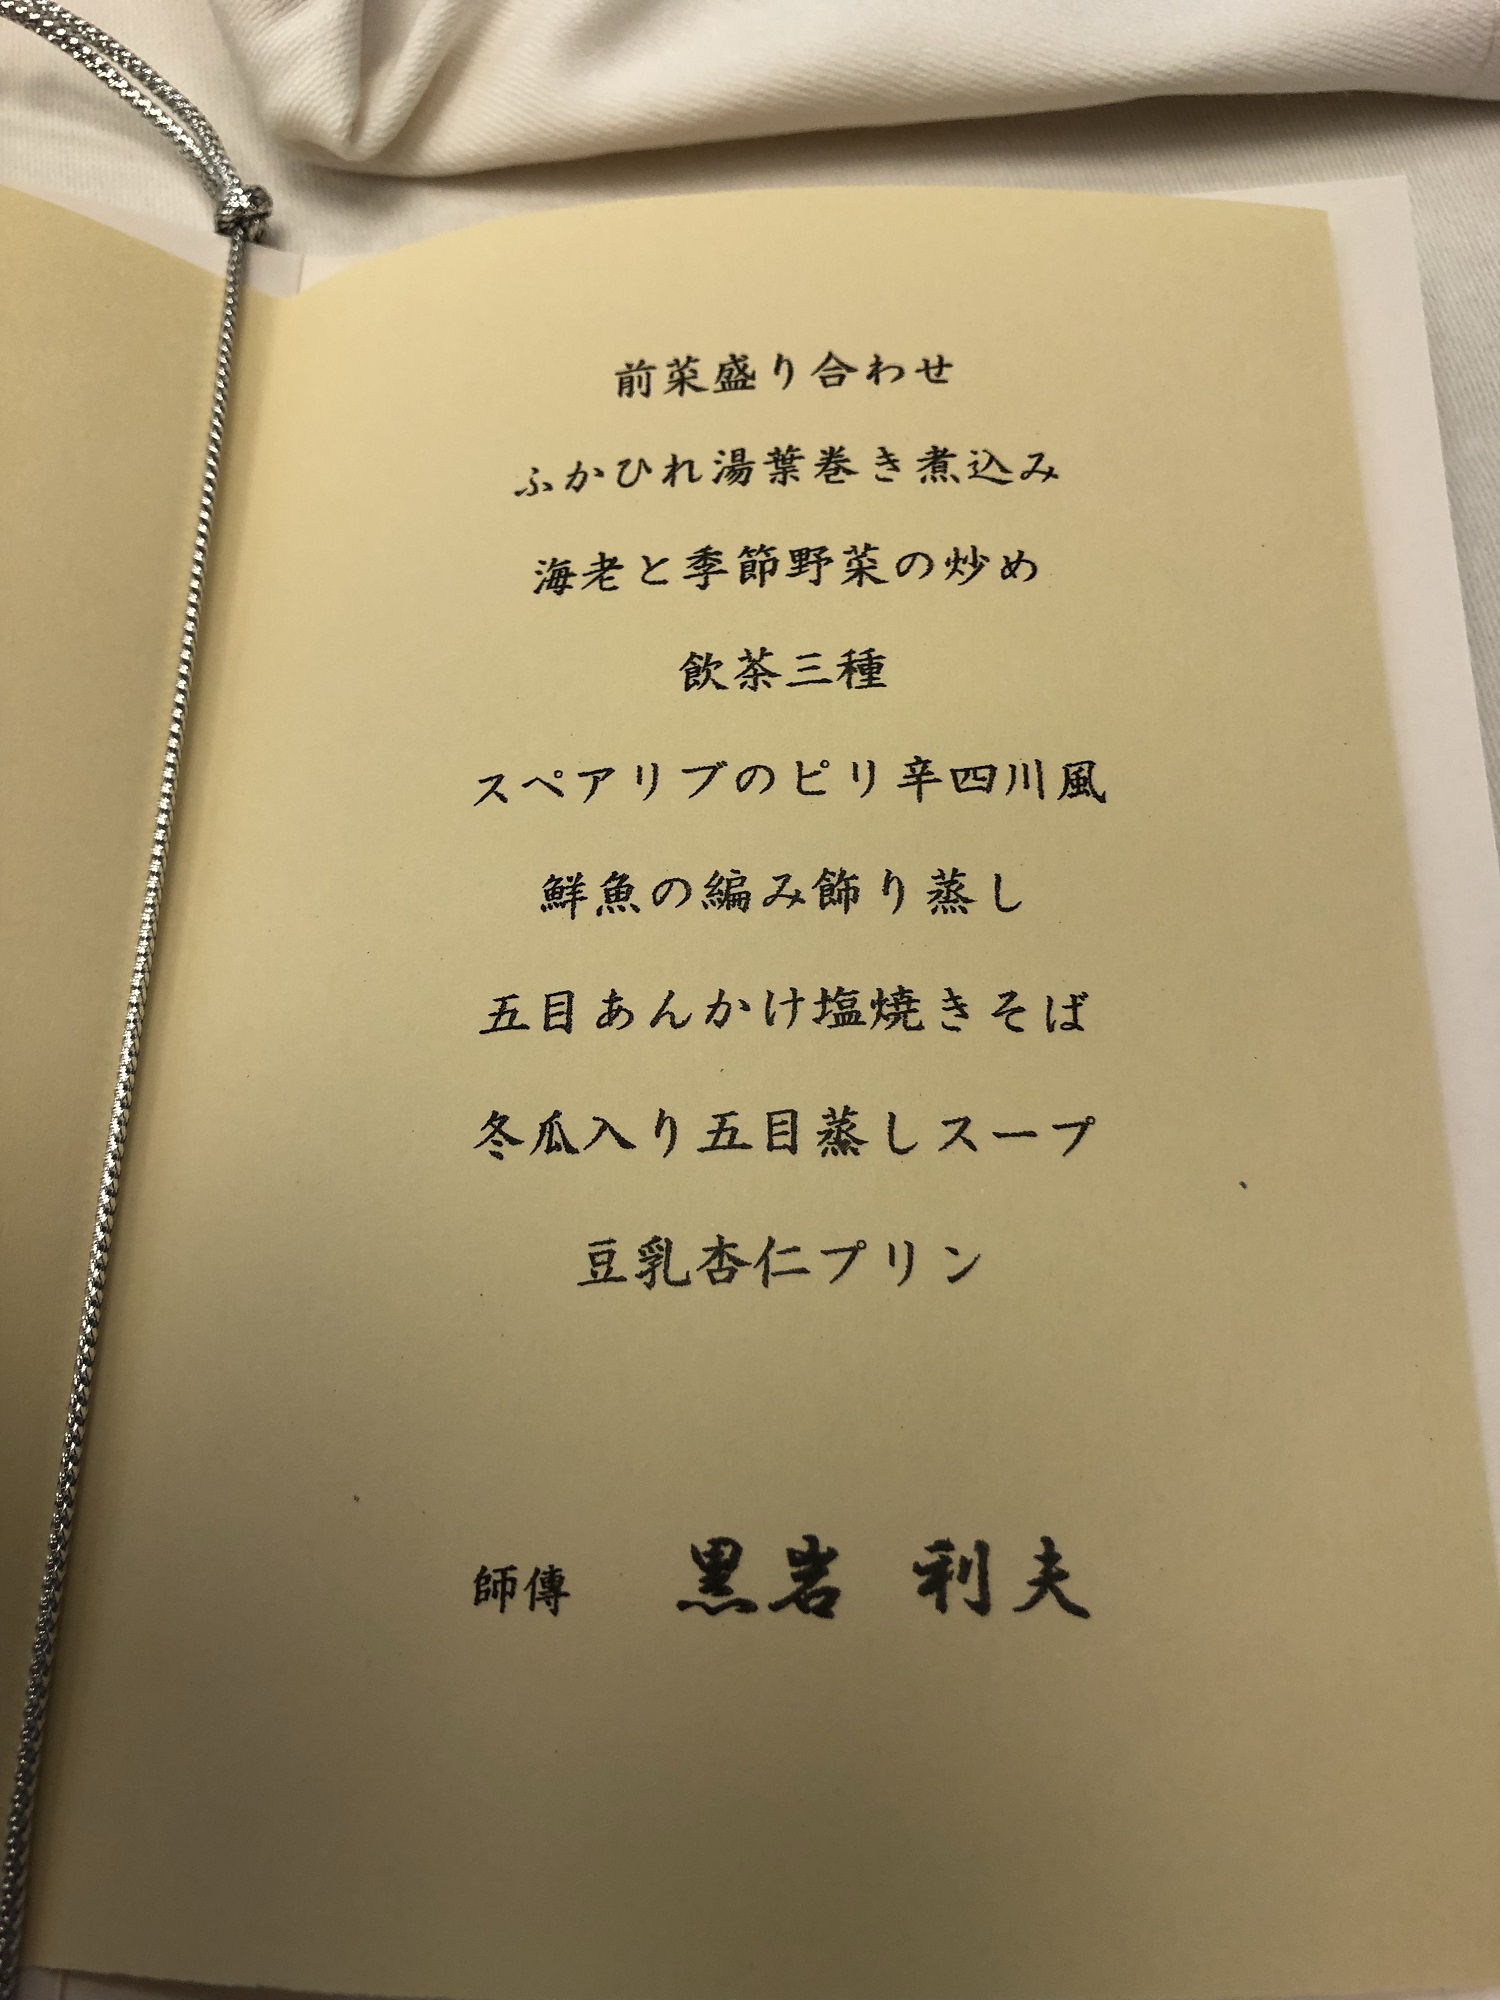 前菜盛り合わせ
ふかひれ湯葉巻き煮込み
海老と季節野菜の炒め
飲茶三種
スペアリブのピリ辛四川風
鮮魚の編み飾り蒸し
五目あんかけ塩焼きそば
冬瓜入り五目蒸しスープ
豆乳杏仁プリン
師傅 黒岩 利夫